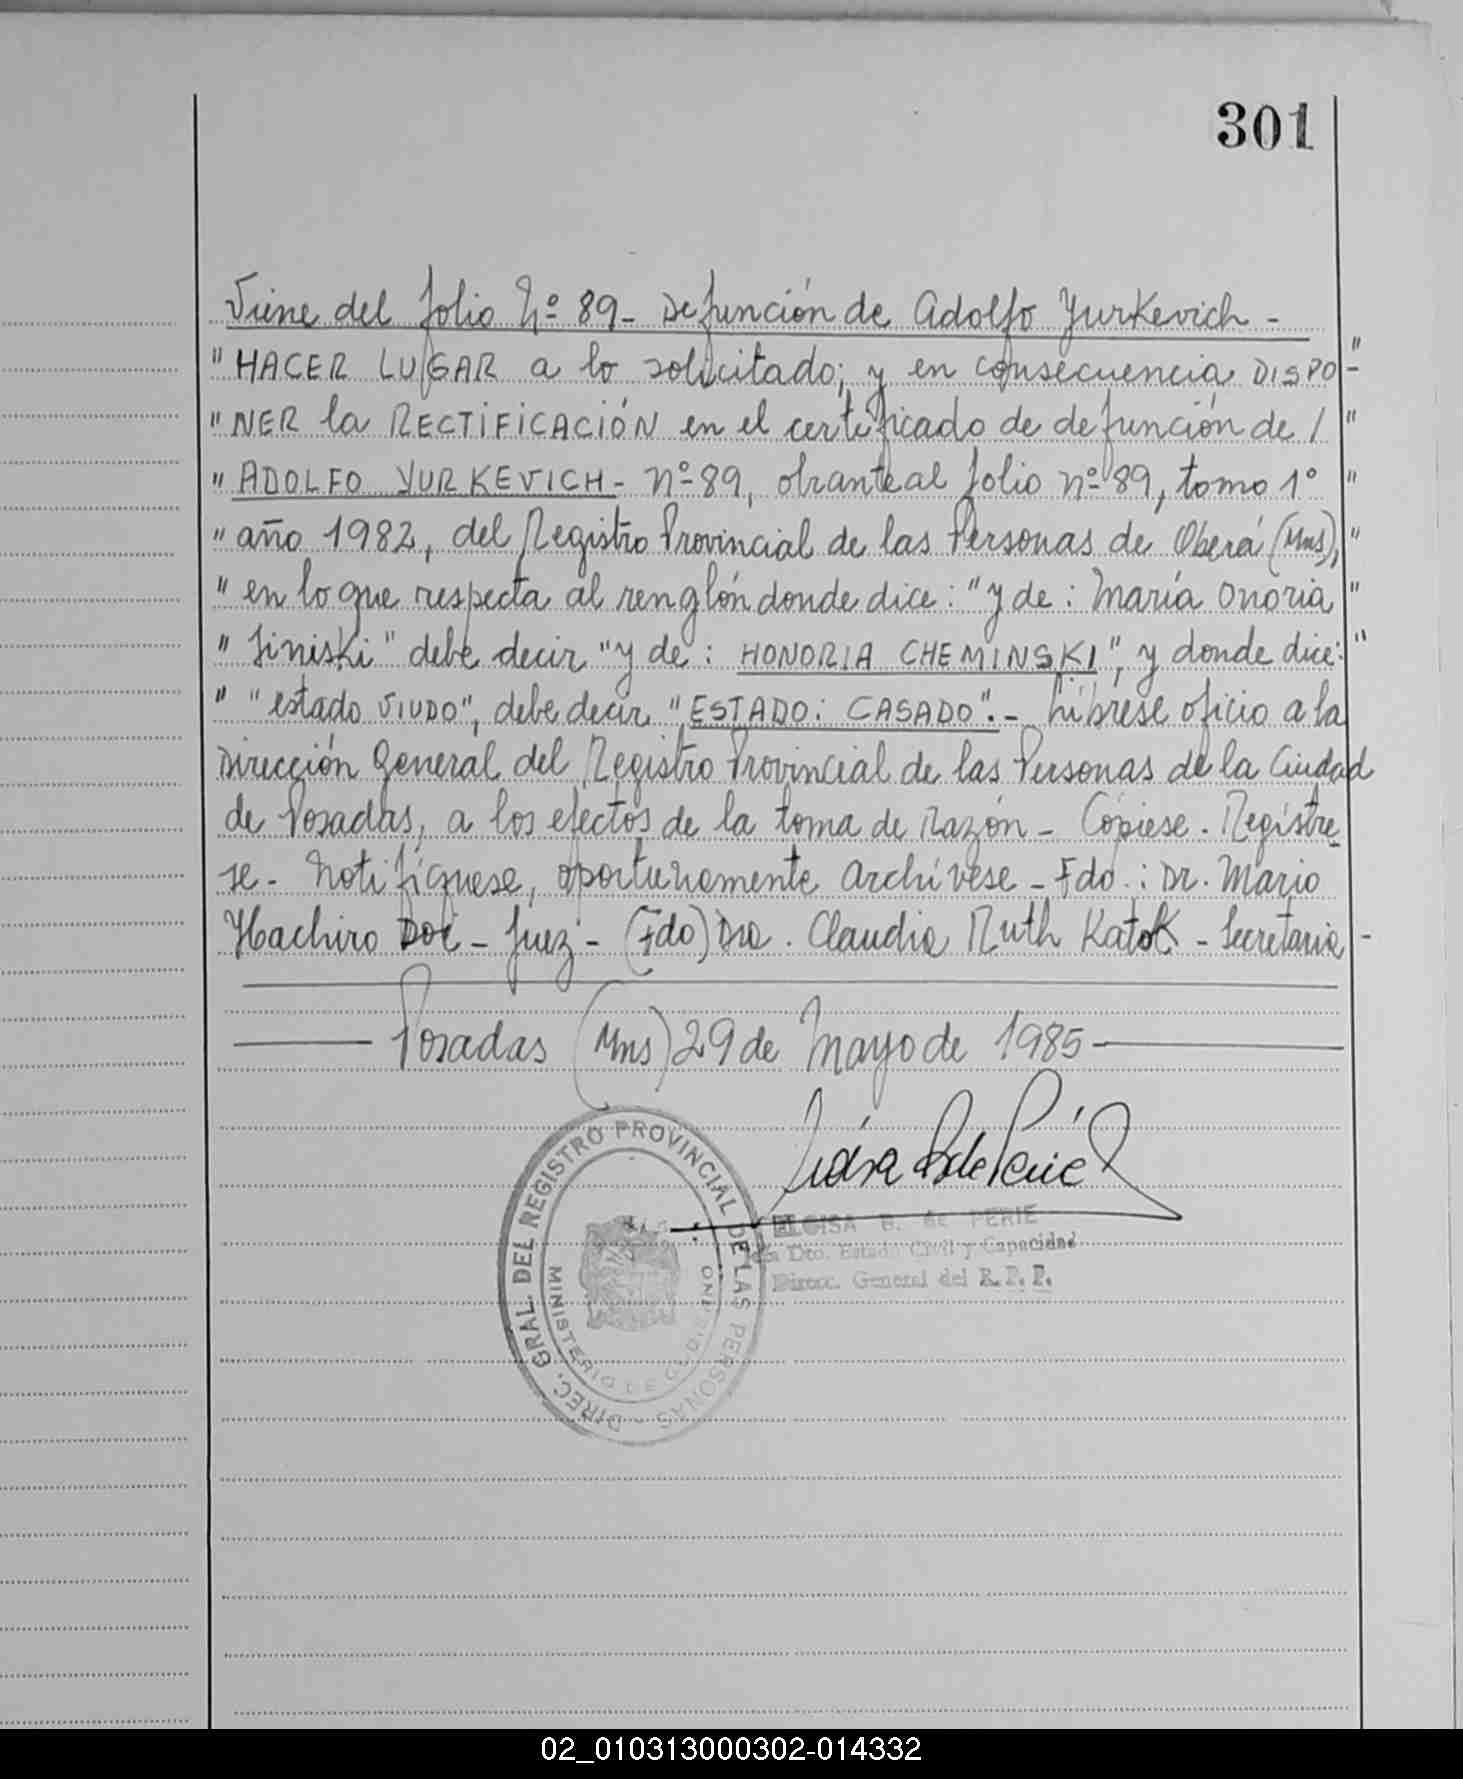 301
Viene del folio Nº 89- Defunción de Adolfo Yurkevich -
"HACER LUGAR a lo solicitado; y en consecuencia DISPO- "
"NER la RECTIFICACIÓN en el certificado de defunción de / "
"ADOLFO YURKEVICH- nº 89, obrante al folio nº 89, tomo 1º "
"año 1982, del Registro Provincial de las Personas de Oberá (Mns), "
"en lo que respecta al renglón donde dice: "y de: María Onoria "
"Siniski" debe decir "y de: HONORIA CHEMINSKI", y donde dice: "
" "estado VIUDO", debe decir "ESTADO: CASADO".- Líbrese oficio a la
Dirección General del Registro Provincial de las Personas de la Ciudad
de Posadas, a los efectos de la toma de Razón - Cópiese. Registre
se- Notifíquese, oportunamente archívese - Fdo.: Dr. Mario
Hachiro Doi - Juez - (Fdo) Dra. Claudia Ruth Katok - Secretaria -
Posadas (Mns) 29 de Mayo de 1985
DIREC. GRAL. DEL REGISTRO PROVINCIAL DE LAS PERSONAS -
MINISTERIO DE GOBIERNO
ELOISA B. de PERIE
Dto. Estado Civil y Capacidad
Direcc. General del R. P. P.
02_010313000302-014332